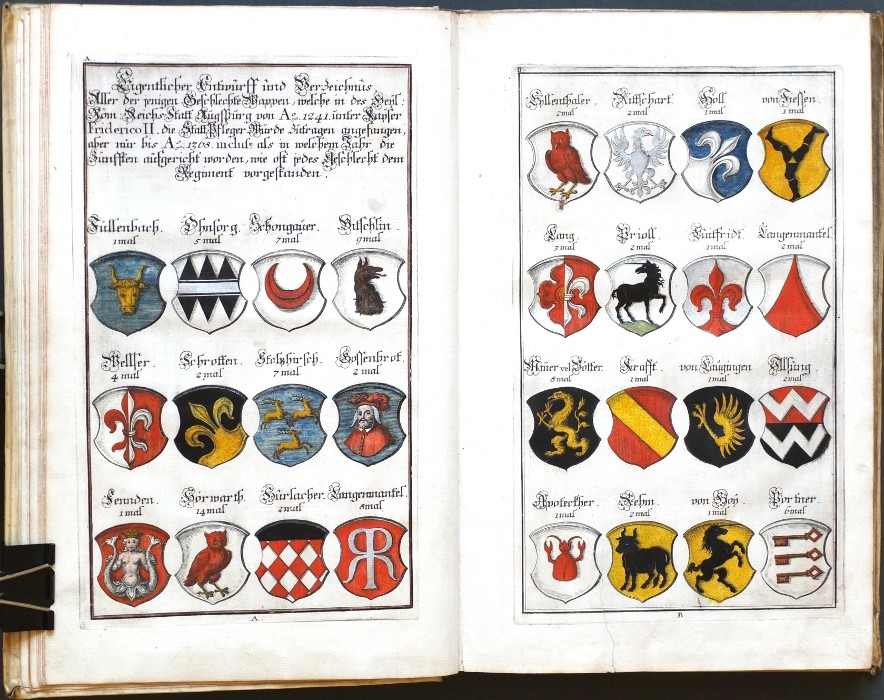 A.
Eigentlicher Entwurff und Verzeichnus
Aller der jenigen Geschlechte Wappen, welche in des Heyl:
Röm: Reichs Statt Augspurg von Ao. 1241. unter Kayser
Friderico II. die Statt Pfleger Würde zutragen angefangen,
aber nur bis Ao. 1368. inclus: als in welchem Jahr die
Zünfften aufgericht worden, wie offt jedes Geschlecht dem
Regiment vorgestanden.
Füllenbach. Ohnsorg. Schongauer. Hitschlin.
1 mal 5 mal 7 mal 9 mal
Wellser. Schrotten. Stolzhirsch. Gossenbrot.
4 mal 2 mal 7 mal 2 mal
Fennden. Hörwarth. Hürlacher. Langenmantel.
1 mal 14 mal 2 mal 8 mal
A.
B.
Hyllenthaler. Rittschart. Holl von Fiessen.
2 mal 2 mal 1 mal 1 mal
Lang. Prioll. Luitfridt. Langenmantel.
3 mal 2 mal 1 mal 2 mal
Minner vel Vötter. Krafft. von Laugingen Ilsung.
8 mal 1 mal 1 mal 2 mal
Apoteckher. Rehm. von Hoÿ. Portner.
1 mal 2 mal 1 mal 6 mal
B.